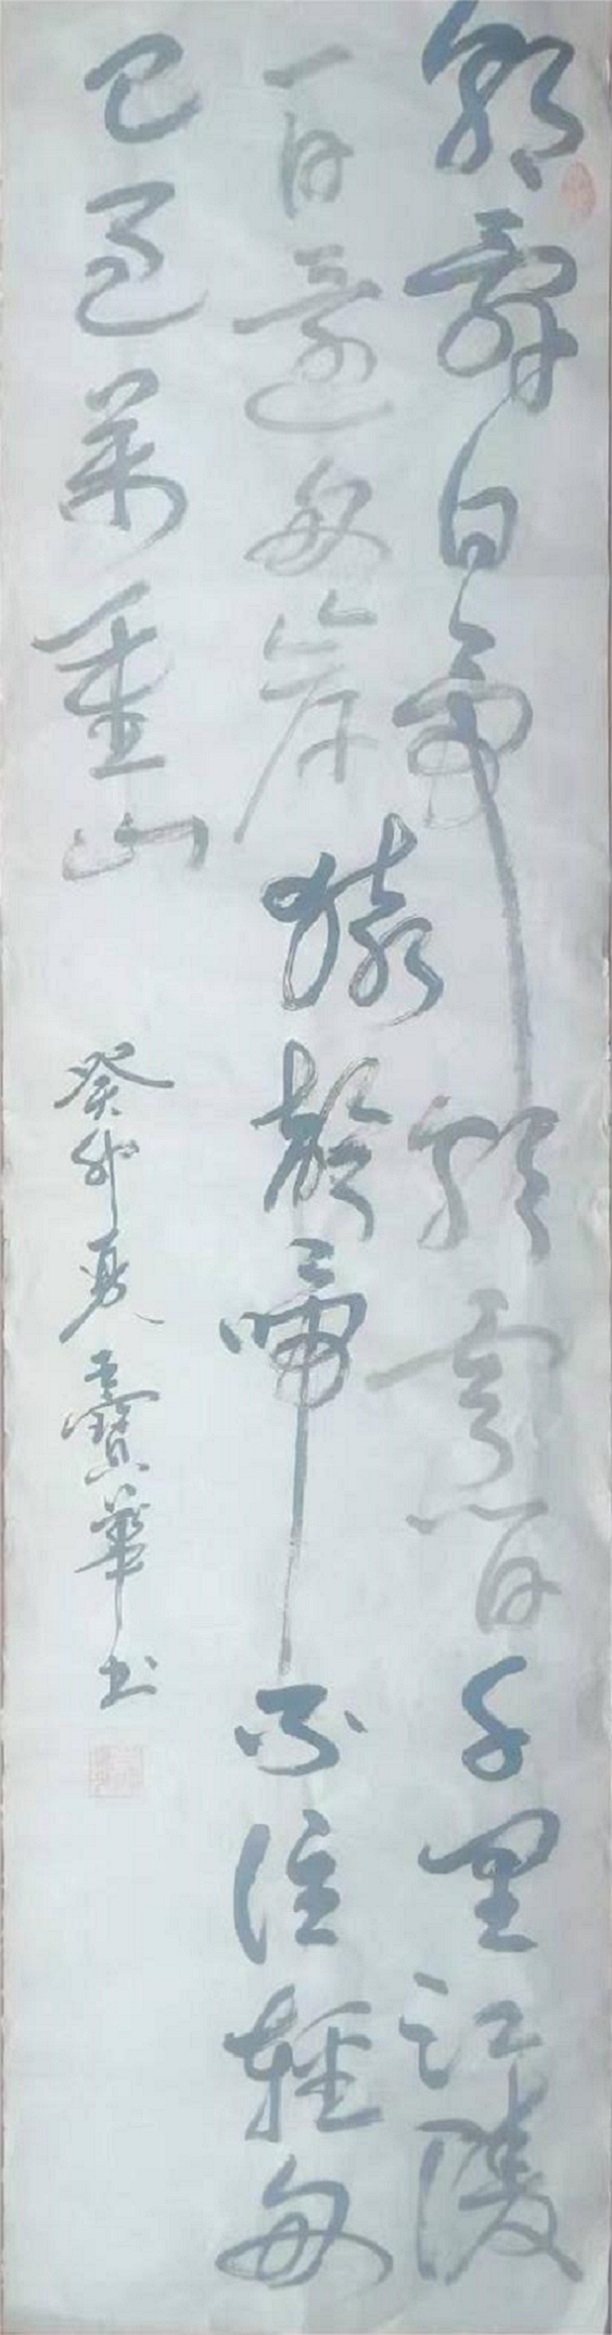 朝辭白帝彩雲間千里江陵
一日還兩岸猿聲啼不住輕舟
已過萬重山
癸卯夏寶華書